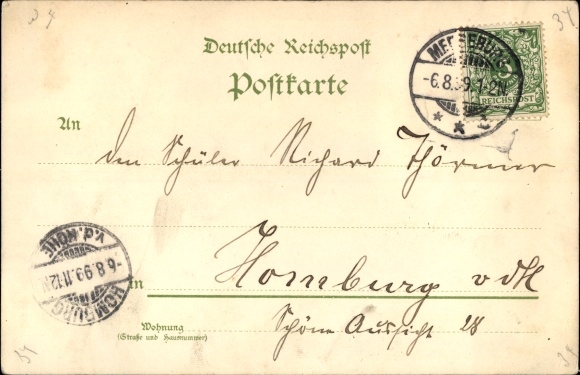 34
34
Deutsche Reichspost
Postkarte
MERSEBURG
-6.8.99.1-2N
REICHSPOST
5
An
den Schüler Richard Thörmer
HOMBURG v.d. HÖHE
-6.8.99.11-12N
in
Homburg vdH
Wohnung
(Straße und Hausnummer)
Schöne Aussicht 28
34
34